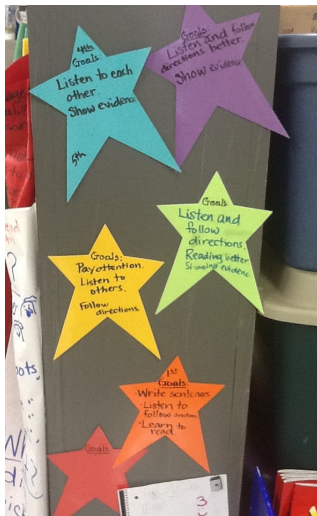 4th
Goals
Listen to each
other.
Show evidence
5th
Goals
Listen and follow
directions better.
Show evidence
Goals
Listen and
follow
directions.
Reading better
Showing evidence
Goals:
Pay attention.
Listen to
others.
Follow
directions.
1st
Goals
- Write sentences
- Listen to
follow directions
- Learn to
read.
Goals
3